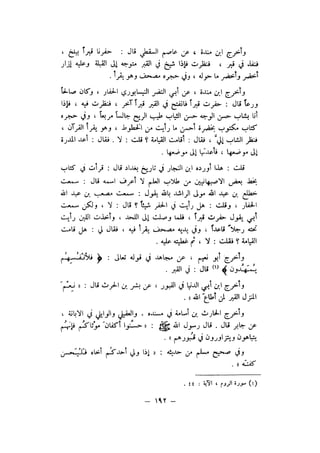 وأخرج ابن مندة ، عن عاصم السقطي قال : حفرنا قبراً ببلخ ،
فنفذ في قبر ، فنظرت فإذا شيخ في القبر متوجه إلى القبلة وعليه إزار
أخضر وأخضر ما حوله ، وفي حجره مصحف وهو يقرأ .
وأخرج ابن مندة ، عن أبي النضر النيسابوري الحفار ، وكان صالحاً
ورعاً قال : حفرت قبراً فانفتح في القبر قبراً آخر ، فنظرت فيه ، فإذا
أنا بشاب حسن الوجه حسن الثياب طيب الريح جالساً مربعاً ، وفي حجره
كتاب مكتوب بخضرة أحسن ما رأيت من الخطوط ، وهو يقرأ القرآن ،
فنظر الشاب إليّ ، فقال : أقامت القيامة ؟ قلت : لا . فقال : أعد المدرة
إلى موضعها ، فأعدتها إلى موضعها .
قلت : هذا أورده ابن النجار في تاريخ بغداد قال : قرأت في كتاب
بخط بعض الاصبهانيين من طلاب العلم لا أعرف اسمه قال : سمعت
خطلع بن عبد الله مولى الراشد بالله يقول : سمعت مصعب بن عبد الله
الحفار ، وقلت : هل رأيت في الحفر شيئاً ؟ قال : لا ، ولكن سمعت
أبي يقول حفرت قبراً ، فلما وصلت إلى اللحد ، وأخذت اللبن رأيت
تحته رجلاً قاعداً ، وفي يديه مصحف يقرأ فيه ، فقال لي : هل قامت
القيامة ؟ فقلت : لا ، ثم غطيته عليه .
وأخرج أبو نعيم ، عن مجاهد في قوله تعالى : ﴿ فلأنفسهم
يمهدون ﴾ (١) قال : في القبر .
وأخرج ابن أبي الدنيا في القبور ، عن بشر بن الحرث قال : « نِعْمَ
المنزل القبر لمن أطاع الله » .
وأخرج الحارث بن أسامة في مسنده . والعقيلي والوايلي في الابانة ،
عن جابر قال . قال رسول الله ﷺ : « حسّنوا أكفان موتاكم فإنهم
يتباهون ويتزاورون في قبورهم » .
وفي صحيح مسلم من حديثه : « إذا ولي أحدكم أخاه فليُحسن
كفنه » .
(١) سورة الروم ، الآية : ٤٤ .
– ١٩٢ –